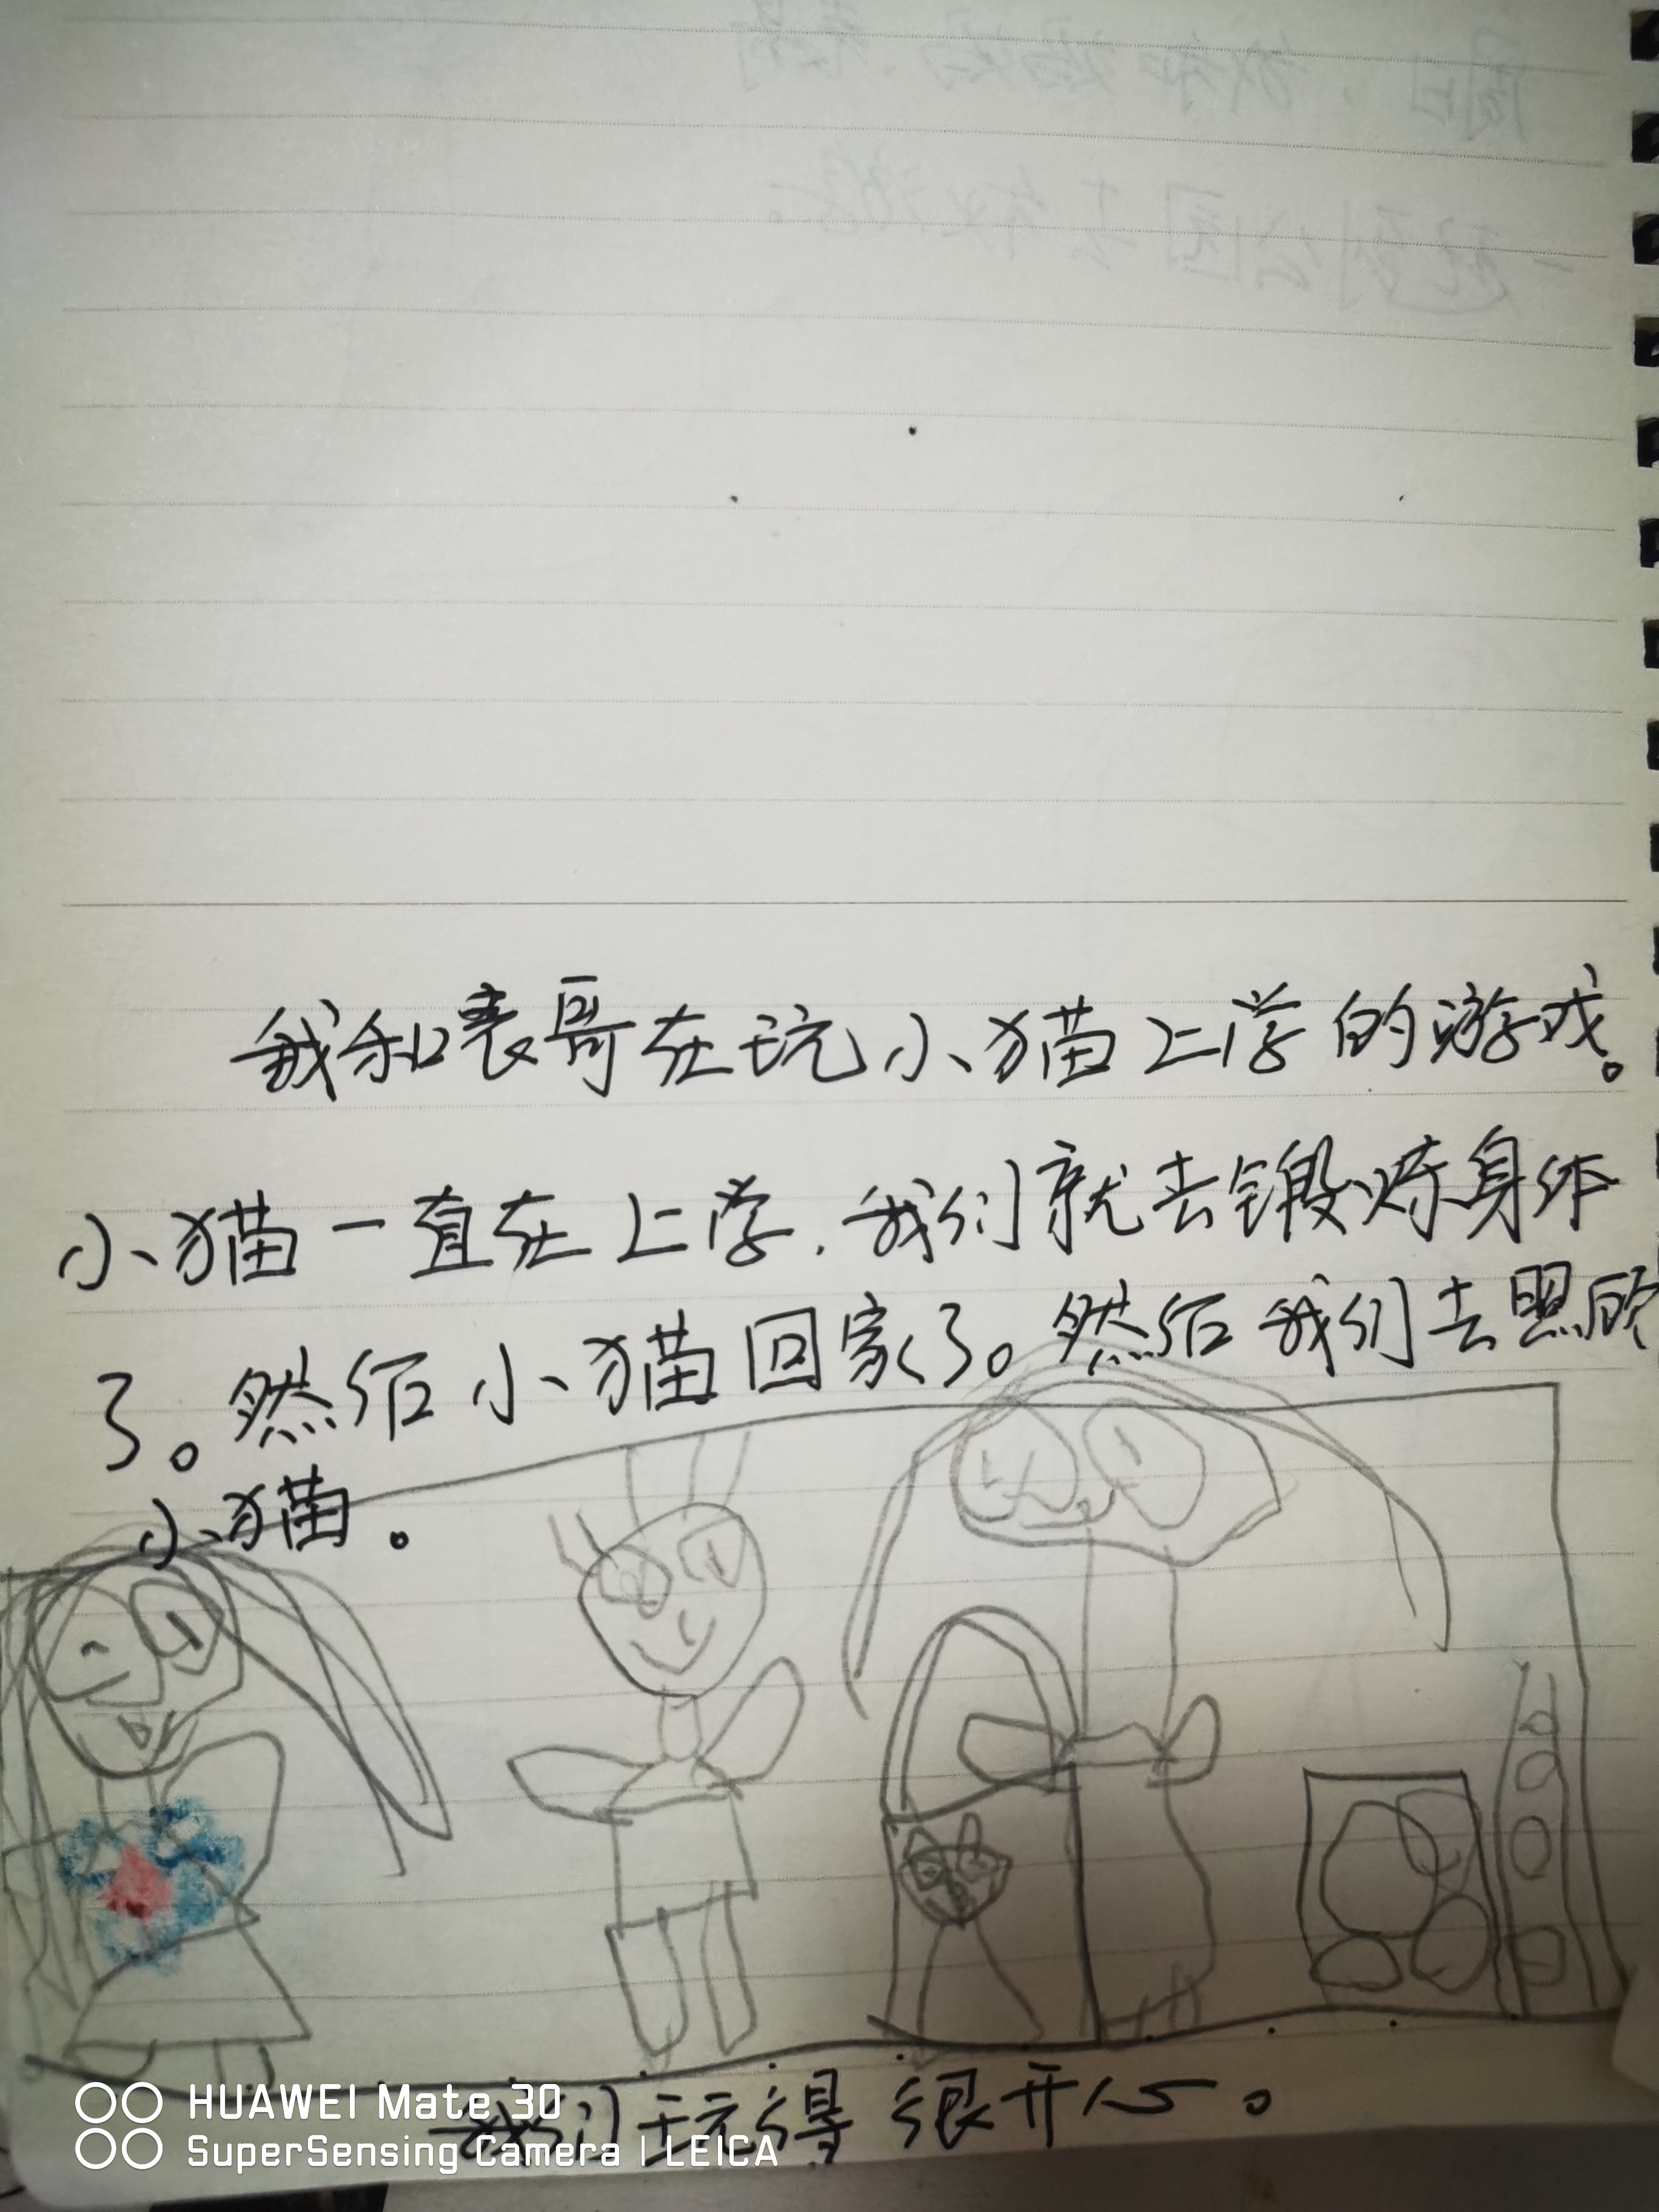 我和表哥在玩小猫上学的游戏。
小猫一直在上学，我们就去锻炼身体
了。然后小猫回家了。然后我们去照顾
小猫。
我们玩得很开心。
HUAWEI Mate 30
SuperSensing Camera | LEICA